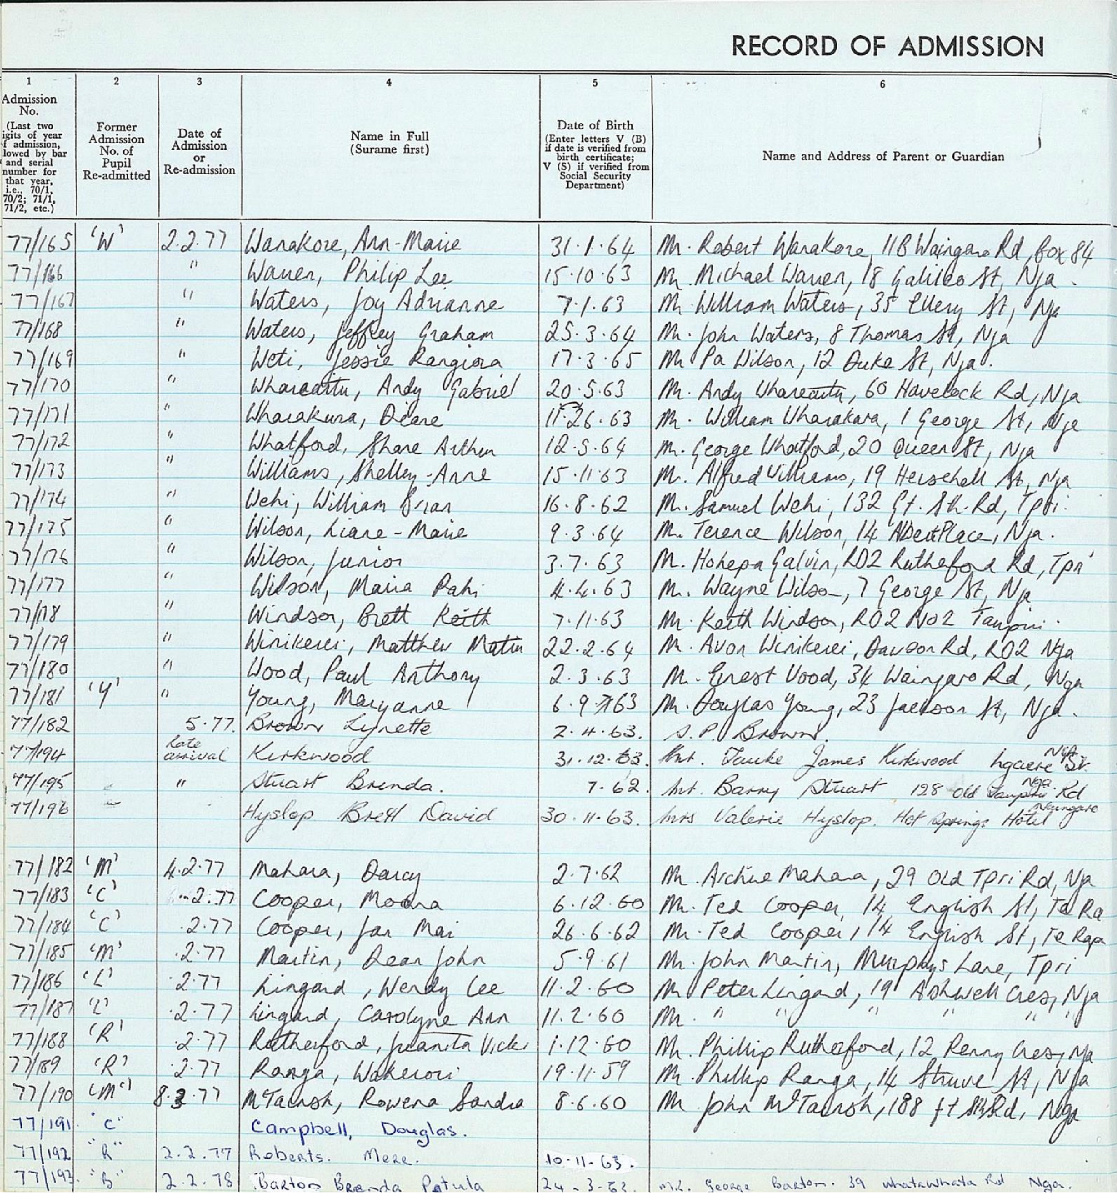 RECORD OF ADMISSION
1 2 3 4 5 6
Admission No. (Last two digits of year of admission, followed by bar and serial number for that year, i.e., 70/1, 70/2; 71/1, 71/2, etc.)
Former Admission No. of Pupil Re-admitted
Date of Admission or Re-admission
Name in Full (Surame first)
Date of Birth (Enter letters V (B) if date is verified from birth certificate; V (S) if verified from Social Security Department)
Name and Address of Parent or Guardian
77/165 'W' 2.2.77 Wanakore, Ann-Marie 31.1.64 Mr. Robert Wanakore, 11B Waingaro Rd, Box 84
77/166 " Warren, Philip Lee 15.10.63 Mr. Michael Warren, 18 Galileo St, Nga.
77/167 " Waters, Joy Adrianne 7.1.63 Mr William Waters, 35 Ellery St, Nga
77/168 " Waters, Jeffrey Graham 25.3.64 Mr. John Waters, 8 Thomas St, Nga
77/169 " Weti, Jessie Rangiora 17.3.65 Mr Pa Wilson, 12 Duke St, Nga.
77/170 " Whareaitu, Andy Gabriel 20.5.63 Mr. Andy Whareaitu, 60 Havelock Rd, Nga
77/171 " Wharakura, Deane 26.63 Mr. William Wharakura, 1 George St, Nga
77/172 " Whatford, Shane Arthur 12.5.64 Mr. George Whatford, 20 Queen St, Nga
77/173 " Williams, Shelley-Anne 15.11.63 Mr. Alfred Williams, 19 Herschell St, Nga
77/174 " Wehi, William Brian 16.8.62 Mr. Samuel Wehi, 132 Gt. Sth. Rd, Tpri.
77/175 " Wilson, Liane-Marie 9.3.64 Mr. Terence Wilson, 14 Place, Nga.
77/176 " Wilson, Junior 3.7.63 Mr. Hohepa Galvin, RD2 Rutherford Rd, Tpri
77/177 " Wilson, Maria Pahi 4.4.63 Mr. Wayne Wilson, 7 George St, Nga
77/178 " Windsor, Brett Keith 7.11.63 Mr. Keith Windsor, RD2 No2 Taupiri.
77/179 " Winikerei, Matthew Matiu 22.2.64 Mr. Avon Winikerei, Dawson Rd, RD2 Nga
77/180 " Wood, Paul Anthony 2.3.63 Mr. Ernest Wood, 34 Waingaro Rd, Nga
77/181 'Y' " Young, Maryanne 6.9.63 Mr. Douglas Young, 23 Jackson St, Nga.
77/182 5.77. Brown Lynette 2.4.63. S.P. Brown.
77/194 Late arrival Kirkwood 31.12.63. Mr. James Kirkwood Ngaere St. Nga
77/195 " Stuart Brenda. 7.62. Mr. Barry Stuart 128 Old Taupiri Rd Nga
77/196 Hyslop Brett David 30.11.63. Mrs Valerie Hyslop. Hot Springs Hotel Waingaro
77/182 'M' 4.2.77 Mahara, Darcy 2.7.62 Mr. Archie Mahara, 29 Old Tpri Rd, Nga
77/183 'C' .2.77 Cooper, Moana 6.12.60 Mr. Ted Cooper, 14 English St, Te Ra
77/184 'C' .2.77 Cooper, Jan Mai 26.6.62 Mr. Ted Cooper, 14 English St, Te Rapa
77/185 'M' .2.77 Martin, Dean John 5.9.61 Mr. John Martin, Murphys Lane, Tpri
77/186 'L' .2.77 Lingard, Wendy Lee 11.2.60 Mr Peter Lingard, 19 Ashwell Cres, Nga
77/187 'L' .2.77 Lingard, Carolyne Ann 11.2.60 Mr. " " " " " "
77/188 'R' .2.77 Rutherford, Juanita Vicki 1.12.60 Mr. Phillip Rutherford, 12 Penny Cres, Nga
77/189 'R' .2.77 Ranga, 19.11.59 Mr. Phillip Ranga, 14 Struve St, Nga
77/190 'M' 8.3.77 McTavish, Rowena Sandra 8.6.60 Mr John McTavish, 188 Gt Sth Rd, Nga
77/191. "C" Campbell, Douglas.
77/192 "R" 2.2.77 Roberts. Mere. 10.11.63.
77/193 "B" 2.2.78 Barton Brenda Petula 24.3.62. Mr. George Barton. 39 Whatawhata Rd Nga.